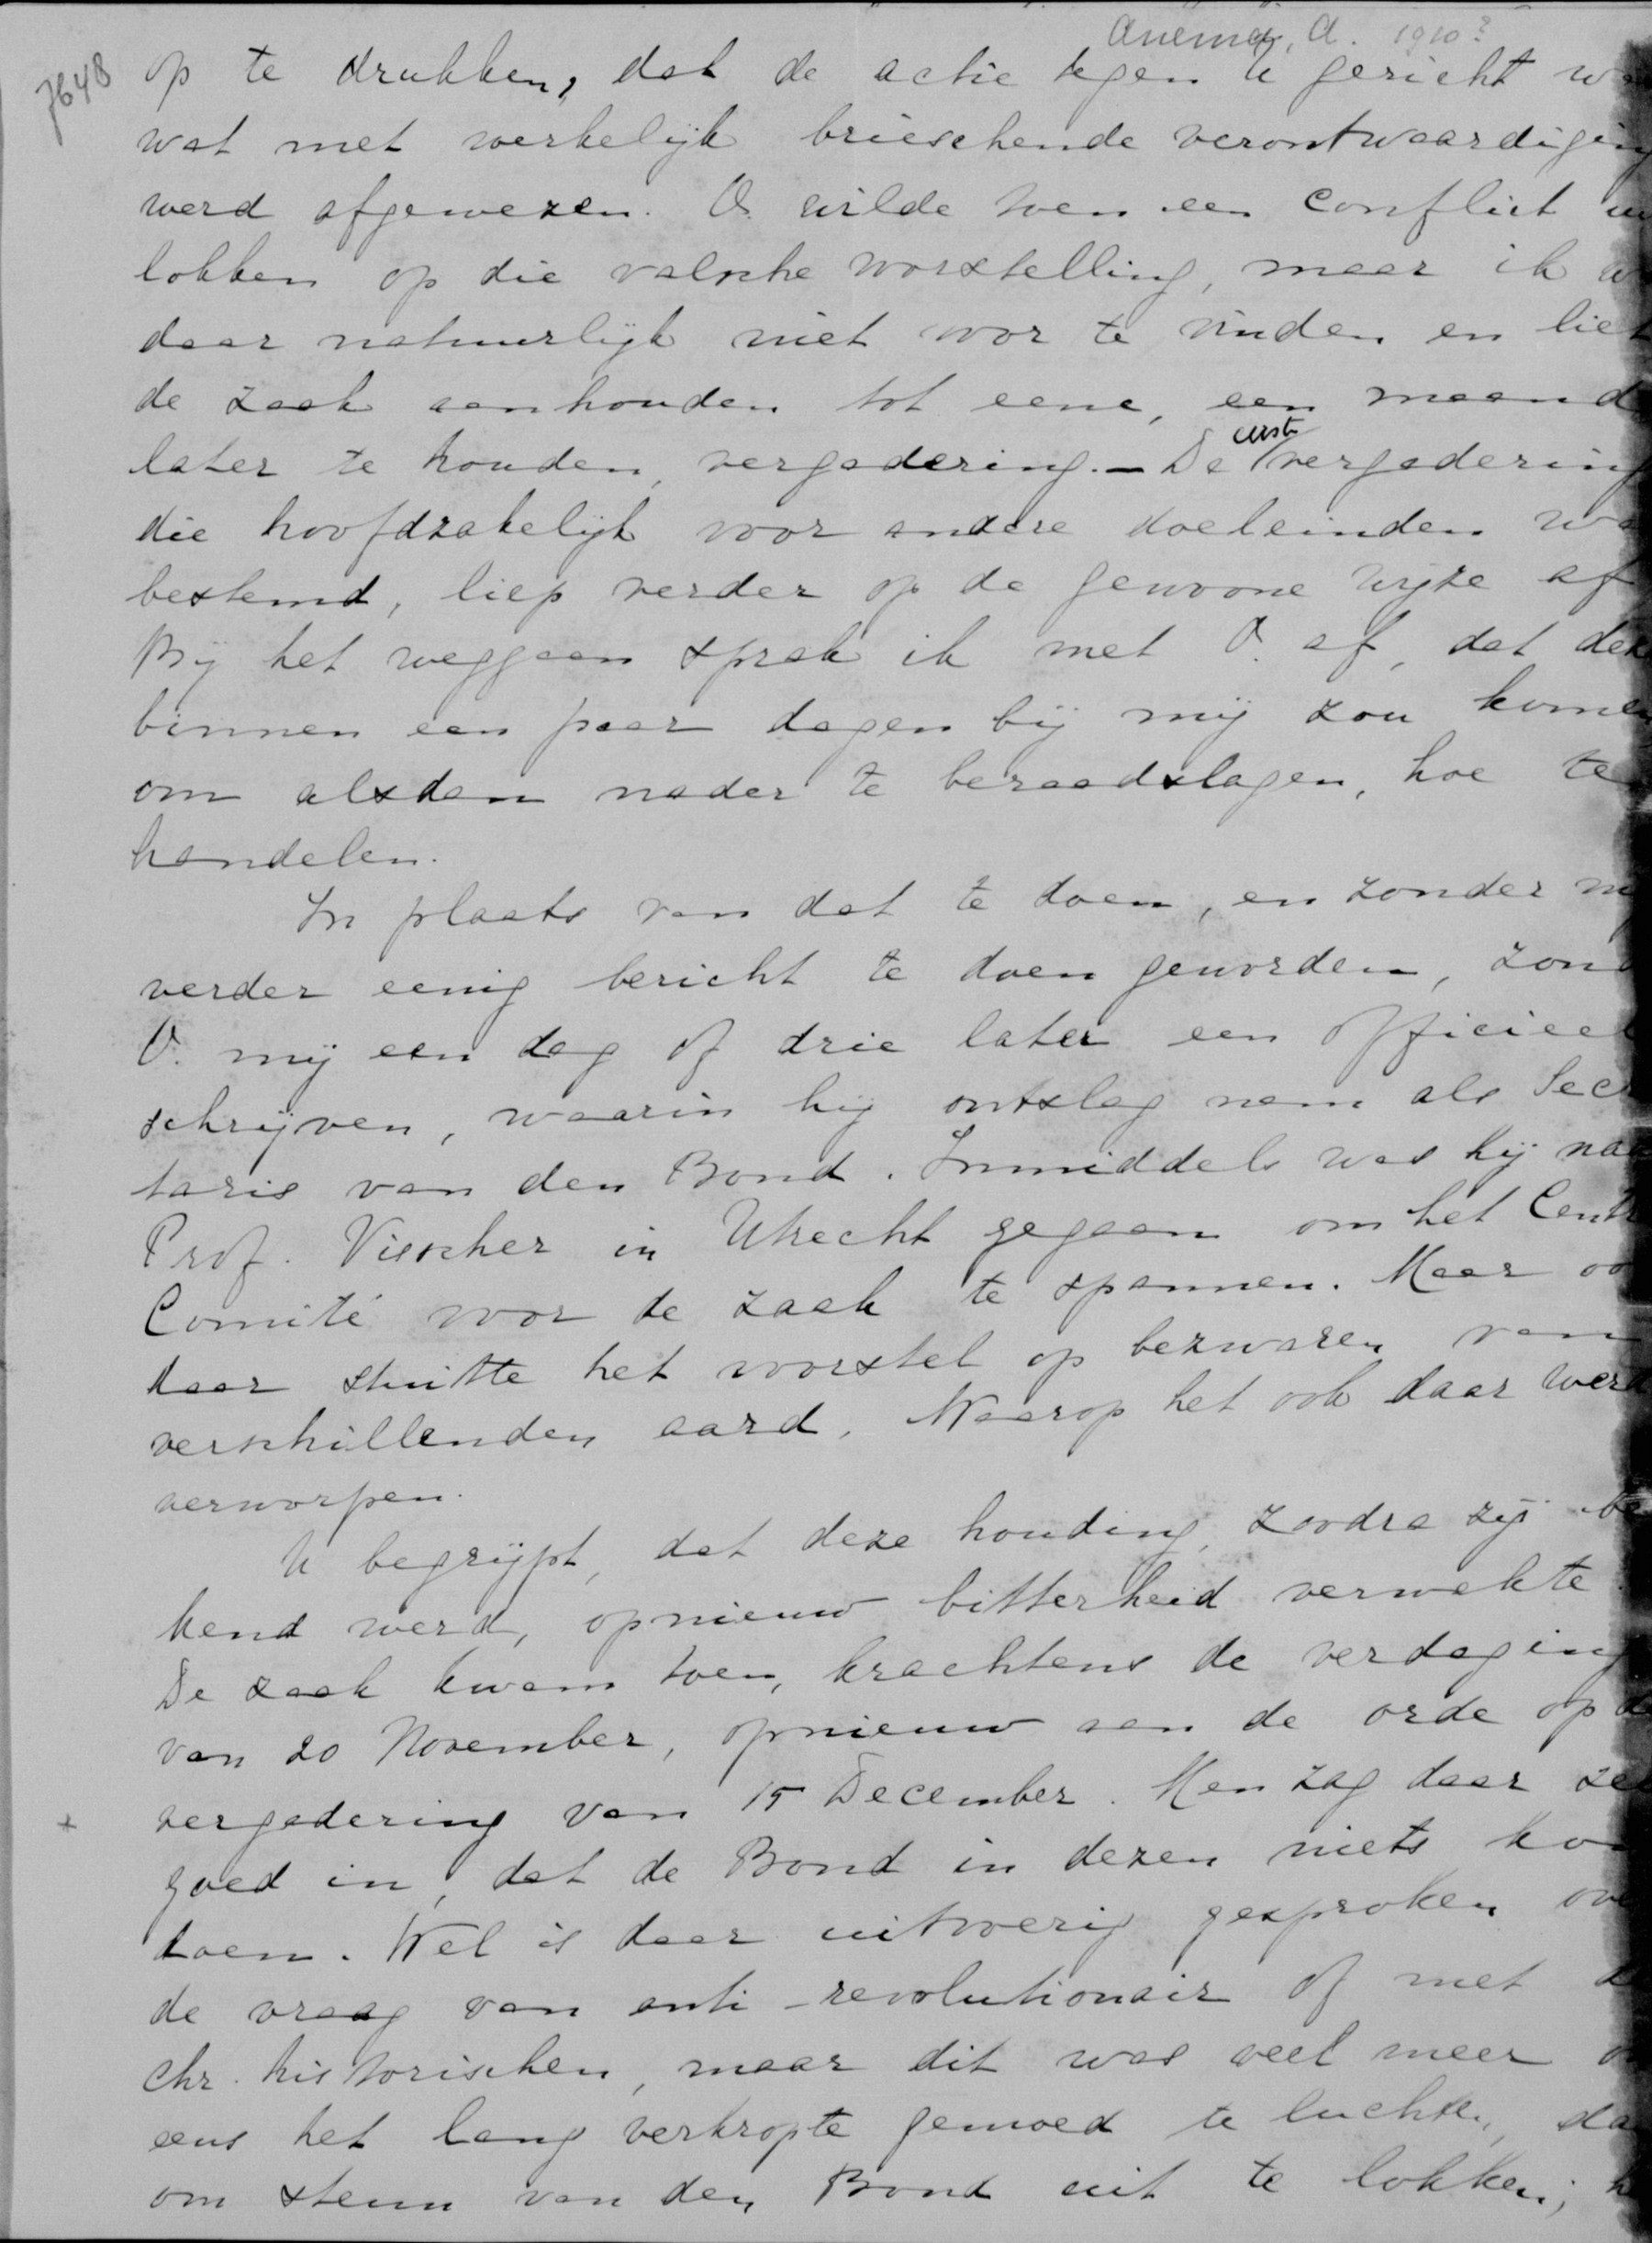 Anema, A. 1910?
7648
op te drukken, dat de actie tegen U gericht w
wat met werkelijk brieschende verontwaardiging
werd afgewezen. O. wilde toen een conflict
lokken op die valsche voorstelling, maar ik w
daar natuurlijk niet voor te vinden en liet
de zaak aanhouden tot eene, een maand
later te houden, vergadering. – De eerste vergadering
die hoofdzakelijk voor andere doeleinden wa
bestemd, liep verder op de gewone wijze af
Bij het weggaan sprak ik met O. af, dat deze
binnen een paar dagen bij mij zou komen
om alsdan nader te beraadslagen, hoe te
handelen.
In plaats van dat te doen, en zonder m
verder eenig bericht te doen geworden, zond
O. mij een dag of drie later een officieel
schrijven, waarin hij ontslag nam als Secr
taris van den Bond. Inmiddels was hij naa
Prof. Visscher in Utrecht gegaan om het Centr
Comité voor de zaak te spannen. Maar oo
daar stuitte het voorstel op bezwaren van
verschillenden aard, Waarop het ook daar werd
verworpen.
U begrijpt, dat deze houding, zoodra zij be
kend werd, opnieuw bitterheid verwekte.
De zaak kwam toen, krachtens de verdaging
van 20 November, opnieuw aan de orde op de
vergadering van 15 December. Men zag daar ze
goed in, dat de Bond in dezen niets kon
doen. Wel is daar uitvoerig gesproken ove
de vraag van anti-revolutionair of met d
chr. historischen, maar dit was veel meer o
eens het lang verkropte gemoed te luchten, da
om steun van den Bond uit te lokken; h